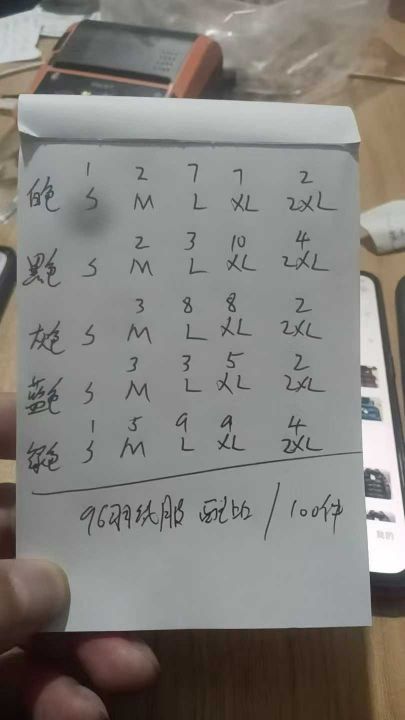 1 2 7 7 2
白色 S M L XL 2XL
2 3 10 4
黑色 S M L XL 2XL
3 8 8 2
灰色 S M L XL 2XL
3 3 5 2
蓝色 S M L XL 2XL
1 5 9 9 4
绿色 S M L XL 2XL
96羽绒服 配比 / 100件
我的